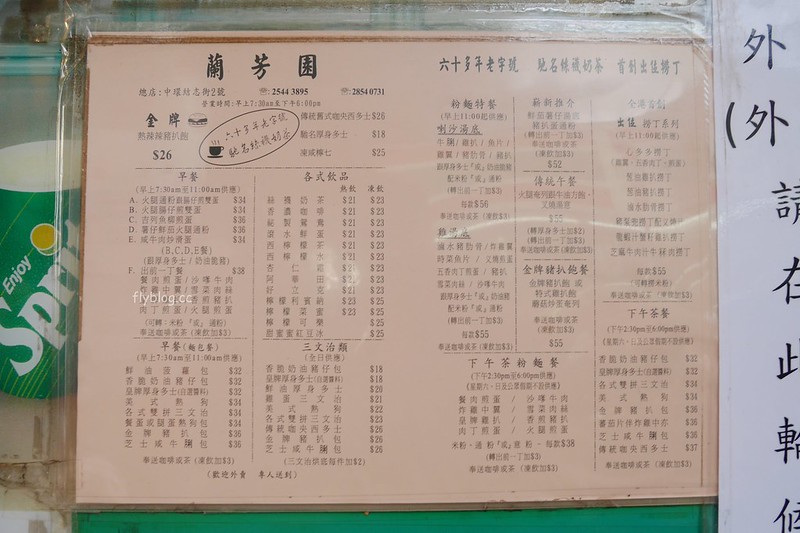 蘭芳園
六十多年老字號 馳名絲襪奶茶 首創出位撈丁
總店:中環結志街2號 ☎:2544 3895 ☎:2854 0731
營業時間:早上7:30am至下午6:00pm
金牌
熱辣辣豬扒飽
$26
六十多年老字號
馳名絲襪奶茶
傳統舊式咖央西多士$26
馳名厚多士 $18
凍咸檸七 $25
早餐
(早上7:30am至11:00am供應)
A. 火腿通粉跟腸仔煎雙蛋 $34
B. 火腿腸仔煎雙蛋 $34
C. 吉列魚柳煎蛋 $34
D. 薯仔鮮茄火腿通粉 $36
E. 咸牛肉炒滑蛋 $34
(B,C,D,E餐)
(跟厚身多士/奶油脆豬)
F. 出前一丁餐 $38
餐肉煎蛋/沙嗲牛肉
炸雞中翼/雪菜肉絲
五香肉丁/香煎豬扒
肉丁煎蛋/火腿煎蛋
(可轉:米粉『或』通粉)
奉送咖啡或茶(凍飲加$3)
早餐(麵包餐)
(早上7:30am至11:00am供應)
鮮油菠蘿包 $32
香脆奶油豬仔包 $32
皇牌厚身多士(自選醬料) $32
美式熱狗 $34
各式雙拼三文治 $34
餐蛋或腿蛋熱狗包 $34
金牌豬扒包 $36
芝士咸牛脷包 $36
奉送咖啡或茶(凍飲加$3)
(歡迎外賣 專人送到)
各式飲品
熱飲 凍飲
絲襪奶茶 $21 $23
香濃咖啡 $21 $23
秘製鴛鴦 $21 $23
滾水鮮蛋 $21 $23
西檸檬茶 $21 $23
西檸檬水 $21 $23
杏仁霜 $21 $23
阿華田 $21 $23
好立克 $21 $23
檸檬利賓納 $23 $25
檸檬菜蜜 $23 $25
檸檬可樂 $25
甜蜜蜜紅豆冰 $25
三文治類
(全日供應)
香脆奶油豬仔包 $18
皇牌厚身多士(自選醬料) $18
鮮油厚多士 $20
雞蛋三文治 $21
美式熱狗 $22
各式雙拼三文治 $23
傳統咖央西多士 $26
金牌豬扒包 $26
芝士咸牛脷包 $26
(三文治烘底每件加$2)
粉麵特餐
(早上11:00起供應)
喇沙湯底
牛脷/雞扒/魚片/
雞翼/豬肋骨/豬扒
跟厚身多士『或』奶油脆豬
配米粉『或』通粉
(轉出前一丁加$3)
每款$56
奉送咖啡或茶(凍飲加$3)
雞湯底
滷水豬肋骨/炸雞翼
時菜魚片/叉燒煎蛋
五香肉丁煎蛋/豬扒
雪菜肉絲/沙嗲牛肉
跟厚身多士『或』奶油豬
配米粉『或』通粉
(轉出前一丁加$3)
每款$55
奉送咖啡或茶(凍飲加$3)
嶄新推介
(早上11:00起供應)
鮮茄薯仔濃湯
豬扒蛋通粉
(轉出前一丁加$3)
奉送咖啡或茶
(凍飲加$3)
$52
傳統午餐
火腿奄列跟牛油方飽、
叉燒湯意
$55
(轉厚身多士加$2)
(轉出前一丁加$3)
奉送咖啡或茶
(凍飲加$3)
金牌豬扒飽餐
金牌豬扒飽 或
特式雞扒飽
蘑菇炒蛋奄列
奉送咖啡或茶
(凍飲加$3)
$55
下午茶粉麵餐
(下午2:30pm至6:00pm供應)
(星期六、日及公眾假期不設供應)
餐肉煎蛋/沙嗲牛肉
炸雞中翼/雪菜肉絲
五香肉丁/香煎豬扒
肉丁煎蛋/火腿煎蛋
米粉、通粉『或』意粉 - 每款$38
(轉出前一丁加$3)
奉送咖啡或茶(凍飲加$3)
全港首創
出位 撈丁系列
(早上11:00起供應)
心多多撈丁
(雞翼、五香肉丁、煎蛋)
葱油雞扒撈丁
葱油豬扒撈丁
滷水肋骨撈丁
芝麻牛肉汁牛冧肉撈丁
每款$55
(可轉撈米粉)
奉送咖啡或茶(凍飲加$3)
下午茶餐
(下午2:30pm至6:00pm供應)
(星期六、日及公眾假期不設供應)
香脆奶油豬仔包 $35
皇牌厚身多士(自選醬料) $35
各式雙拼三文治 $34
美式熱狗 $34
金牌豬扒包 $36
蕃茄片伴炸雞中亦 $36
芝士咸牛脷包 $36
傳統咖央西多士 $37
奉送咖啡或茶(凍飲加$3)
flyblog.cc
Enjoy
Spri
外
(外
請
在
此
輪
候